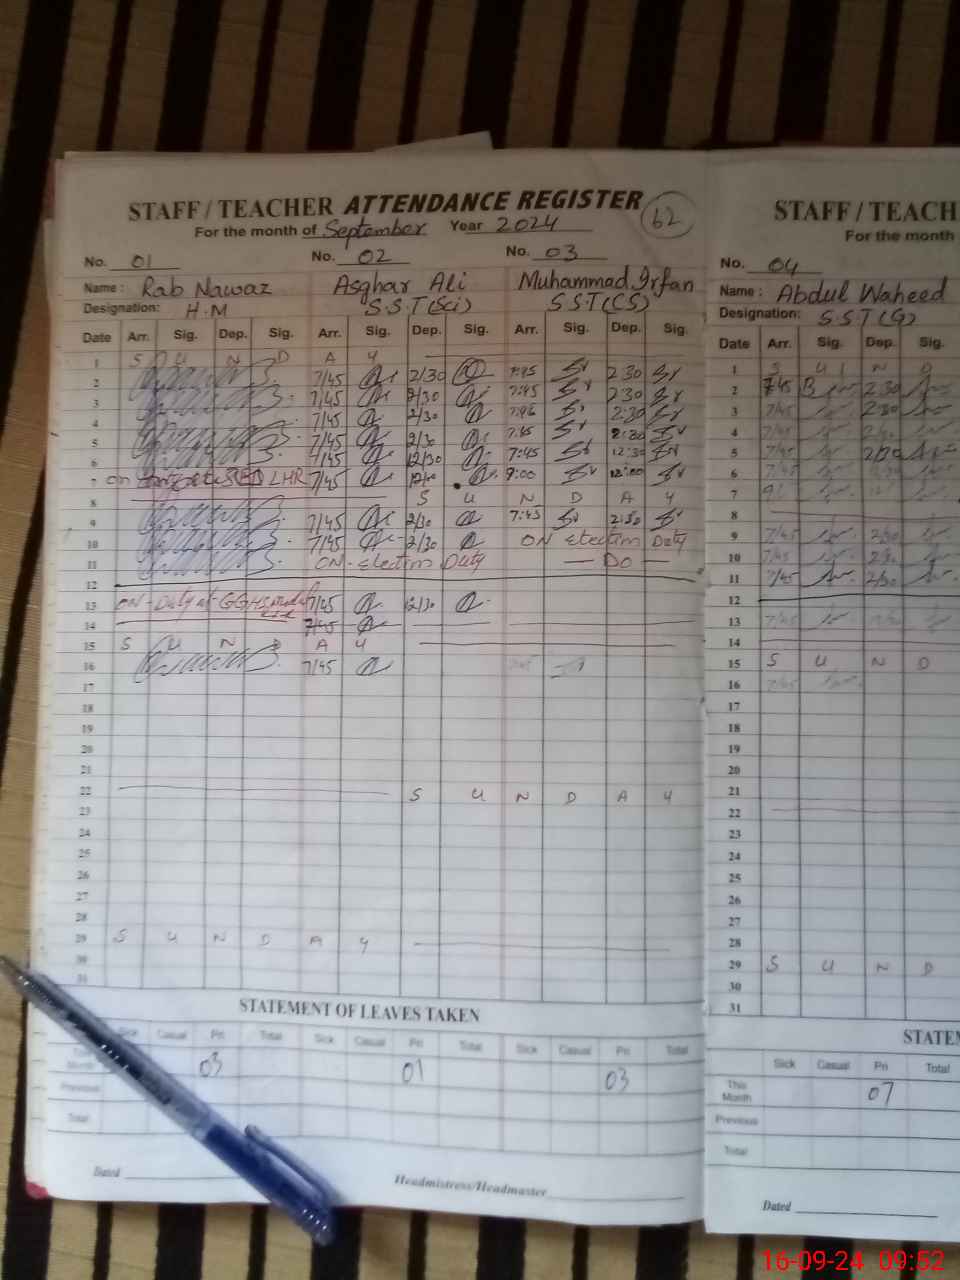 STAFF / TEACHER ATTENDANCE REGISTER
For the month of September Year 2024
62
No. 01 No. 02 No. 03
Name : Rab Nawaz Asghar Ali Muhammad Irfan
Designation: H.M S.S.T(Sci) S.S.T(CS)
Date Arr. Sig. Dep. Sig. Arr. Sig. Dep. Sig. Arr. Sig. Dep. Sig.
1 S U N D A Y
2 7/45 2/30 7:45 2:30
3 7/45 2/30 7:45 2:30
4 7/45 2/30 2:30
5 7/45 2/30 7:45 2:30
6 7/45 12/30 7:45 12:30
7 on LHR 7/45 9:00 12:00
8 S U N D A Y
9 7/45 2/30 7:45 2:30
10 7/45 2/30 ON Election Duty
11 ON-Election Duty — DO —
12
13 ON-Duty at 7/45 12/30
14 7/45
15 S U N D A Y
16 7/45
17
18
19
20
21
22 S U N D A Y
23
24
25
26
27
28
29 S U N D A Y
30
31
STATEMENT OF LEAVES TAKEN
Sick Casual Pri Total Sick Casual Pri Total Sick Casual Pri Total
03 01 03
Previous
Total
Dated Headmistress/Headmaster
STAFF / TEACH
For the month
No. 04
Name : Abdul Waheed
Designation: S.S.T(G)
Date Arr. Sig. Dep. Sig.
1 S U N D
2 7:45 2:30
3 7/45 2:30
4 7/45
5 7/45
6 7/45
7
8
9 7/45 2/30
10 7/45 2/30
11 7/45 2/30
12
13 7/45
14
15 S U N D
16 7/45
17
18
19
20
21
22
23
24
25
26
27
28
29 S U N D
30
31
STATEM
Sick Casual Pri Total
This Month 07
Previous
Total
Dated
16-09-24 09:52